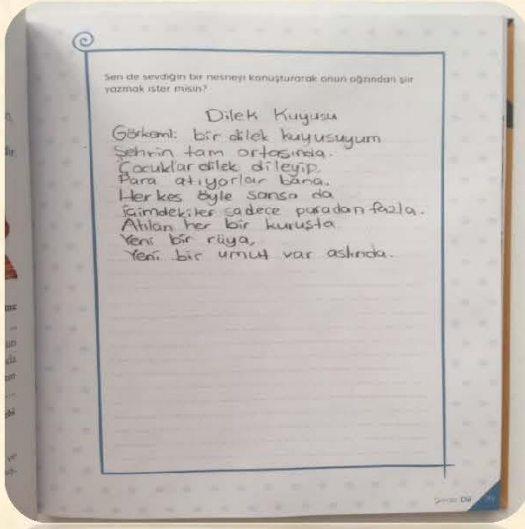 Sen de sevdiğin bir nesneyi konuşturarak onun ağzından şiir
yazmak ister misin?
Dilek Kuyusu
Görkemli bir dilek kuyusuyum
Şehrin tam ortasında.
Çocuklar dilek dileyip,
Para atıyorlar bana.
Herkes öyle sansa da
İçimdekiler sadece paradan fazla.
Atılan her bir kuruşta
Yeni bir rüya,
Yeni bir umut var aslında.